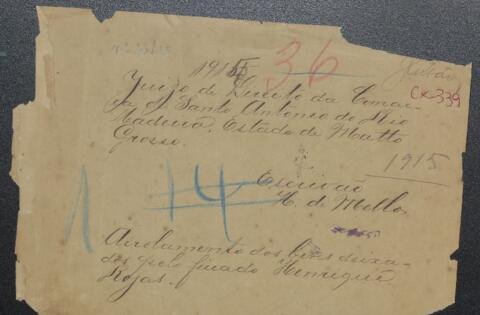 1915
36
Cx-339
Juizo de Direito da Comar-
ca de Santo Antonio do Rio
Madeira, Estado de Matto
Grosso.
1915
Escrivão
M. de Mello
1 14
Arrolamento dos bens deixa-
dos pelo finado Henrique
Rojas.